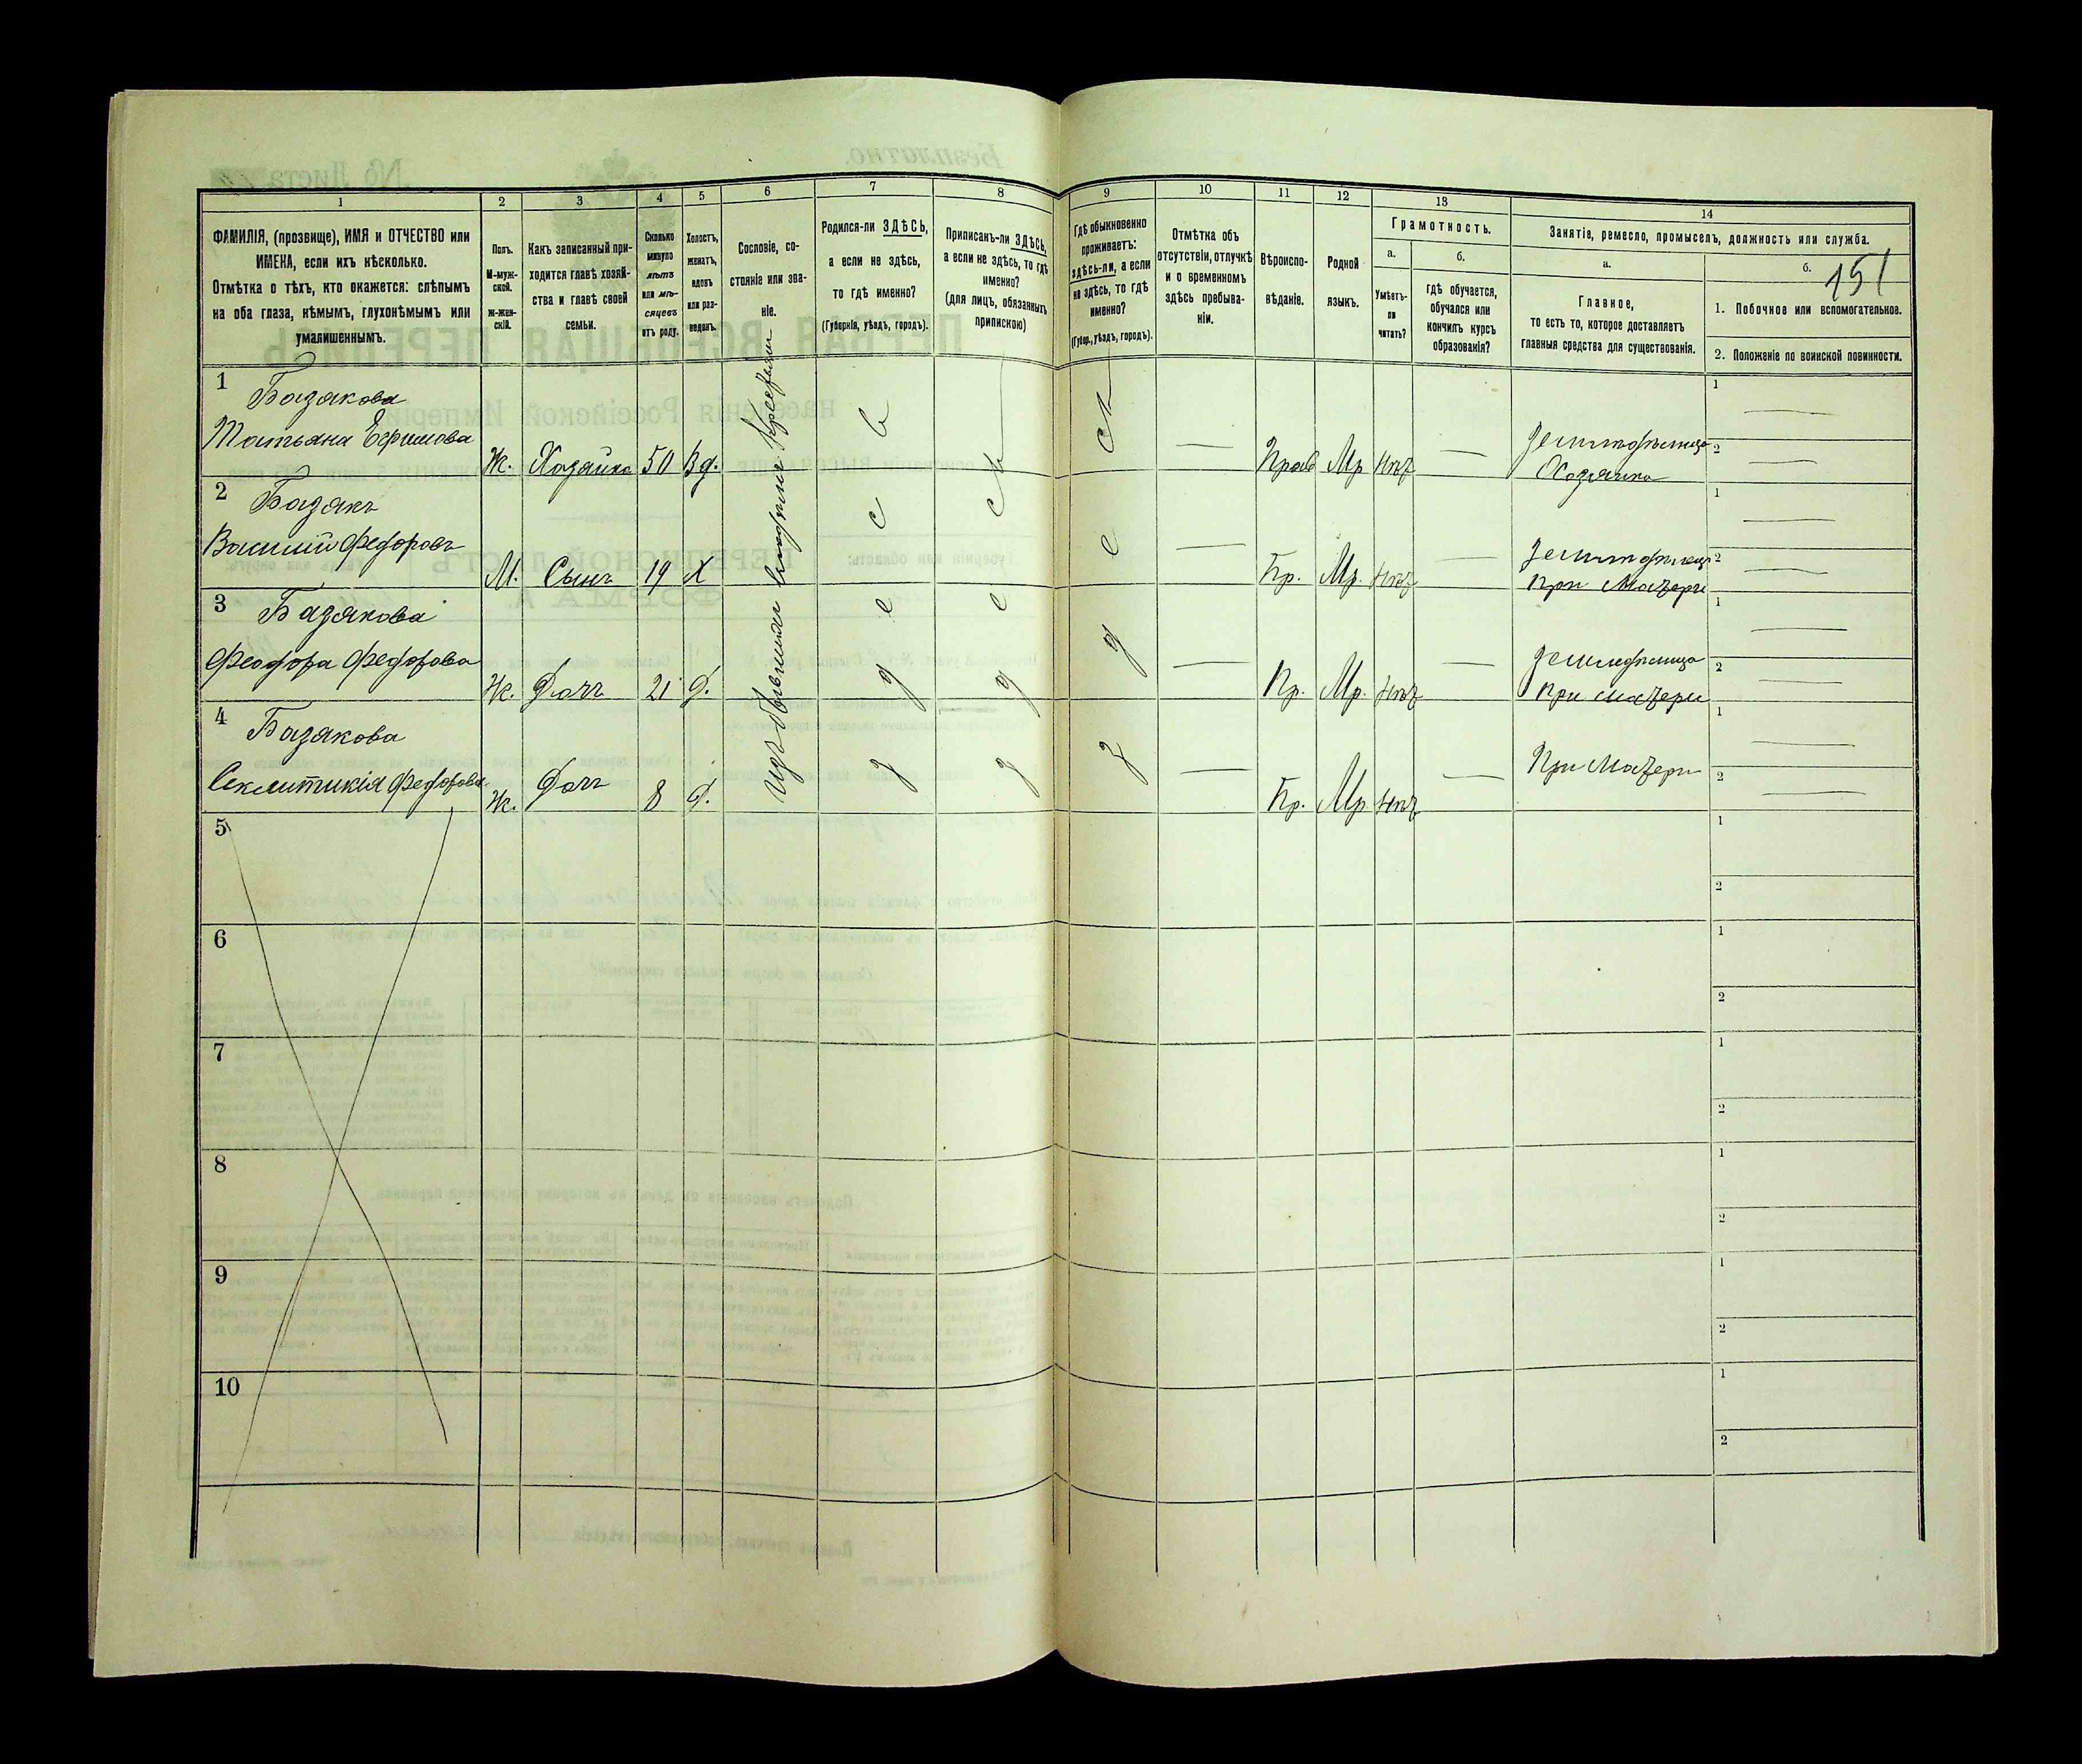 1
2
3
4
5
6
7
8
9
10
11
12
13
14
ФАМИЛІЯ, (прозвище), ИМЯ и ОТЧЕСТВО или
ИМЕНА, если ихъ нѣсколько.
Отмѣтка о тѣхъ, кто окажется: слѣпымъ
на оба глаза, нѣмымъ, глухонѣмымъ или
умалишеннымъ.
Полъ.
М-муж-
ской.
ж-жен-
скій.
Какъ записанный при-
ходится главѣ хозяй-
ства и главѣ своей
семьи.
Сколько
минуло
лѣтъ
или мѣ-
сяцевъ
отъ роду.
Холостъ,
женатъ,
вдовъ
или раз-
веденъ.
Сословіе, со-
стояніе или зва-
ніе.
Родился-ли ЗДѢСЬ,
а если не здѣсь,
то гдѣ именно?
(Губернія, уѣздъ, городъ).
Приписанъ-ли ЗДѢСЬ,
а если не здѣсь, то гдѣ
именно?
(для лицъ, обязанныхъ
припискою)
Гдѣ обыкновенно
проживаетъ:
здѣсь-ли, а если
не здѣсь, то гдѣ
именно?
(Губер., уѣздъ, городъ).
Отмѣтка объ
отсутствіи, отлучкѣ
и о временномъ
здѣсь пребыва-
ніи.
Вѣроиспо-
вѣданіе.
Родной
языкъ.
Грамотность.
а.
Умѣетъ-
ли
читать?
б.
гдѣ обучается,
обучался или
кончилъ курсъ
образованія?
Занятіе, ремесло, промыселъ, должность или служба.
а.
Главное,
то есть то, которое доставляетъ
главныя средства для существованія.
б.
151
1. Побочное или вспомогательное.
2. Положеніе по воинской повинности.
1 Базякова
Татьяна Ефимова Ж. Хозяйка 50 Вд. Прав Мр нѣт
Хозяйка
1
2
2 Базякъ
Василій Федоровъ М. Сынъ 19 Х Пр. Мр. нѣт
При Матери
1
2
3 Базякова
Феодора Федорова Ж. Дочь 21 Д. Пр. Мр. нѣт
При матери
1
2
4 Базякова
Секлитикія Федорова Ж. Дочь 8 Д. Пр. Мр нѣт При Матери
1
2
изъ бывшихъ
здѣсь
здѣсь
здѣсь
5
1
2
6
1
2
7
1
2
8
1
2
9
1
2
10
1
2